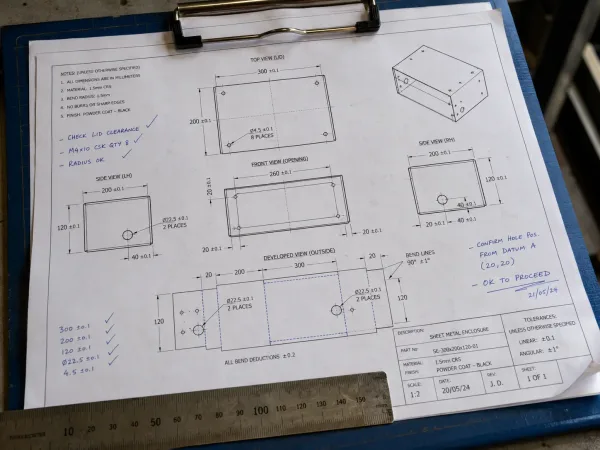 NOTES: (UNLESS OTHERWISE SPECIFIED)
1. ALL DIMENSIONS ARE IN MILLIMETERS
2. MATERIAL: 1.5mm CRS
3. BEND RADIUS:
4. NO BURRS OR SHARP EDGES
5. FINISH: POWDER COAT - BLACK
- CHECK LID CLEARANCE ✓
- M4x10 CSK QTY 8 ✓
- RADIUS OK ✓
TOP VIEW (LID)
300 ±0.1
200 ±0.1
Ø4.5 ±0.1
8 PLACES
SIDE VIEW (LH)
200 ±0.1
120 ±0.1
Ø22.5 ±0.1
2 PLACES
40 ±0.1
FRONT VIEW (OPENING)
260 ±0.1
20 ±0.1
20 ±0.1
20 ±0.1
SIDE VIEW (RH)
200 ±0.1
120 ±0.1
40 ±0.1
20 ±0.1
40 ±0.1
DEVELOPED VIEW (OUTSIDE)
20
200
300
20
BEND LINES
90° ±1°
Ø22.5 ±0.1
2 PLACES
Ø22.5 ±0.1
2 PLACES
120
120
ALL BEND DEDUCTIONS ±0.2
- CONFIRM HOLE POS.
FROM DATUM A
(20,20)
- OK TO PROCEED
21/05/24
300 ±0.1 ✓
200 ±0.1 ✓
120 ±0.1 ✓
Ø22.5 ±0.1 ✓
4.5 ±0.1 ✓
DESCRIPTION:
SHEET METAL ENCLOSURE
PART No:
SE-300x200x120-01
MATERIAL:
1.5mm CRS
FINISH:
POWDER COAT - BLACK
SCALE:
1:2
DATE:
20/05/24
REV:
J.D.
SHEET:
1 OF 1
TOLERANCES:
UNLESS OTHERWISE SPECIFIED
LINEAR: ±0.1
ANGULAR: ±1°
10 20 30 40 50 60 70 80 90 100 110 120 130 140 150